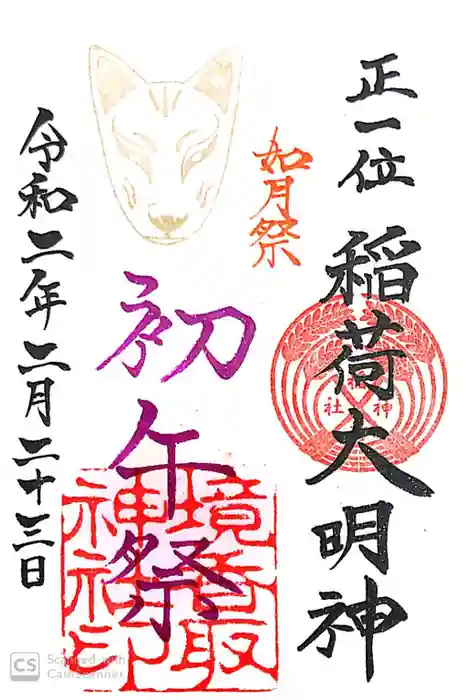 正一位 稲荷大明神
神社
如月祭
初午祭
境香取
神社印
令和二年二月二十三日
CS Scanned with
CamScanner